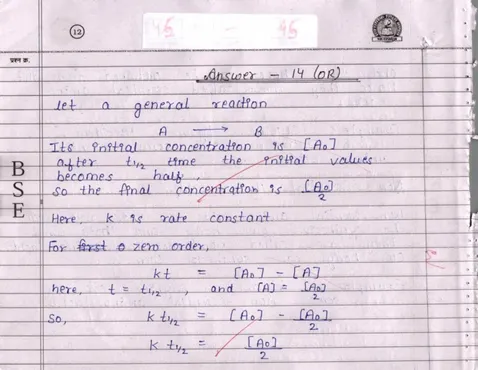 12
प्रश्न क्र.
Answer - 14 (OR)
let a general reaction
A ⟶ B
Its initial concentration is [A₀]
after t₁/₂ time the initial values
becomes half,
so the final concentration is [A₀]/2
Here, k is rate constant
For first o zero order,
kt = [A₀] - [A]
here, t = t₁/₂, and [A] = [A₀]/2
So, k t₁/₂ = [A₀] - [A₀]/2
k t₁/₂ = [A₀]/2
B
S
E